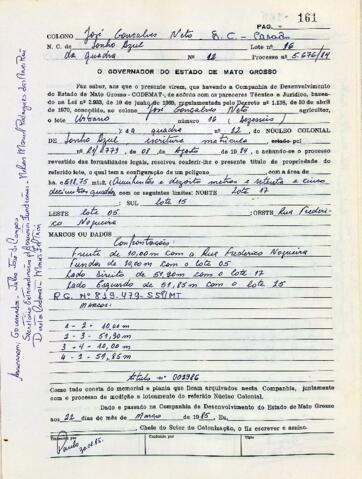 PAG. 161
COLONO José Gonsalves Neto S.C - Casado
N. C. de Sonho Azul Lote nº 16
da quadra Nº 12 Processo nº 5.676/84
O GOVERNADOR DO ESTADO DE MATO GROSSO
Faz saber, aos que o presente virem, que havendo a Companhia de Desenvolvimento
do Estado de Mato Grosso - CODEMAT, de acordo com os pareceres Técnico e Jurídico, basea-
da na Lei nº 2.923, de 19 de junho de regulamentada pelo Decreto nº 1.138, de 30 de abril
de 1970, concedido, ao colono José Gonsalves Neto agricultor,
o lote Urbano número 16 (Dezesseis)
da quadra nº 12, DO NÚCLEO COLONIAL
DE Sonho Azul escritura matrícula
nº 21/1779, de 08 de Agosto de 1984, e achando-se o processo
revestido das formalidades legais, resolveu conferir-lhe o presente título de propriedade do
referido lote, que tem a configuração de um polígono com a área de
ha 518,75 mts (Quinhentos e dezoito metros e setenta e cinco
decímetros quadra) com os seguintes limites: NORTE lote 17
SUL lote 15
LESTE lote 05 OESTE Rua Frederi-
co Nogueira
MARCOS OU DADOS
Confrontações:
Frente de 10,00m com a Rua Frederico Nogueira
Fundos de 10,00m com o lote 05
Lado Direito de 51,90m com o lote 17
Lado Esquerdo de 51,85m com o lote 15
R.G. Nº 819.479-SSP/MT
MARCOS:
1 - 2 - 10,00m
2 - 3 - 51,90m
3 - 4 - 10,00m
4 - 1 - 51,85m
título nº 001986
Como tudo consta do memorial e planta que ficam arquivados nesta Companhia, juntamente
com o processo de medição e loteamento do referido Núcleo Colonial.
Dado e passado na Companhia de Desenvolvimento do Estado de Mato Grosso
aos 22 dias do mês de Março de 1985, Eu,
Chefe do Setor de Colonização, o fiz escrever e assino.
Conferido por